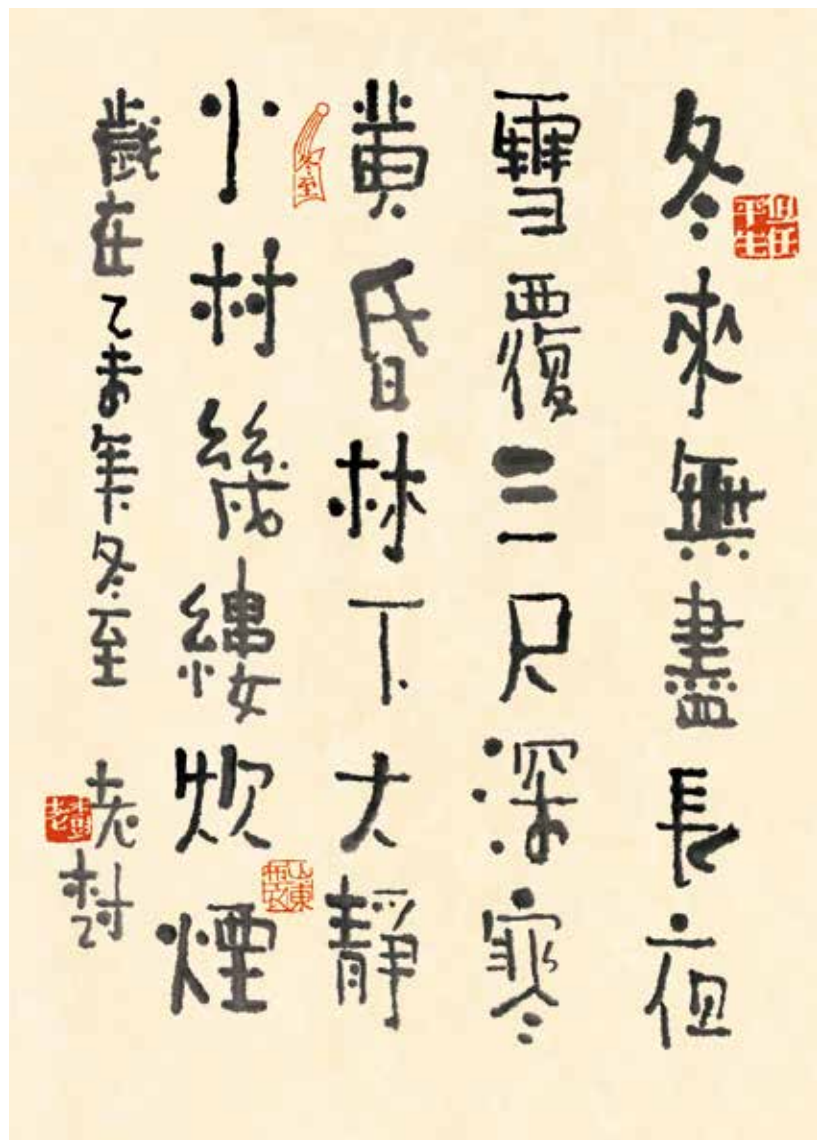 冬來無盡長夜
雪覆三尺深寒
黃昏林下大靜
小村幾縷炊煙
歲在乙未年冬至 老樹
冬至